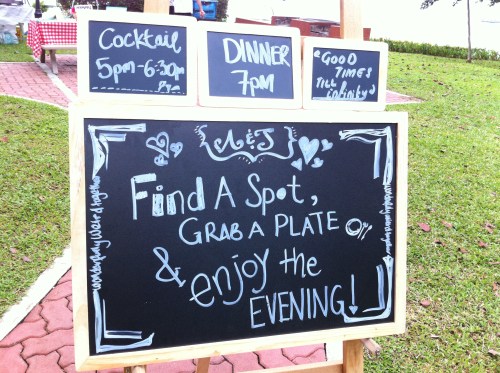 Cocktail
5pm-6:30pm
DINNER
7pm
GOOD
TIMES
TILL
infinity
A & J
Find A Spot,
GRAB A PLATE
& enjoy the
EVENING!